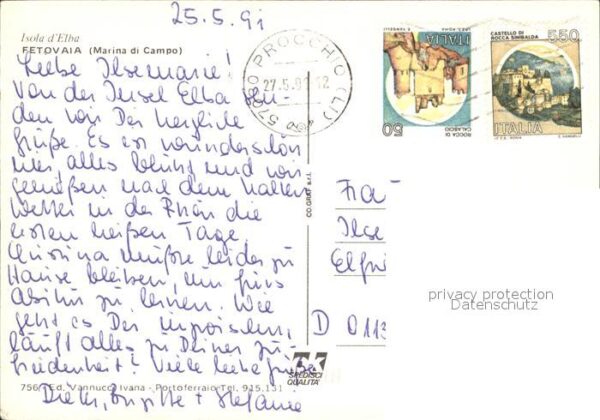 25.5.91
Isola d'Elba
FETOVAIA (Marina di Campo)
Liebe Ilsemarie!
Von der Insel Elba sen-
den wir Dir herzliche
Grüße. Es ist wunderschön
hier, alles blüht und wir
genießen nach dem kalten
Wetter in der Rhön die
ersten heißen Tage.
mußte leider zu
Hause bleiben, um fürs
Abitur zu lernen. Wie
geht es Dir inzwischen,
läuft alles zu Deiner Zu-
friedenheit? Viele liebe Grüße
Dieter, Brigitte + Stefanie
756 - Ed. Vannucci Ivana - Portoferraio Tel. 915.131
CO.GRAF s.r.l.
SPEDISCI QUALITA'
PROCCHIO (LI)
27.5.91 12
ITALIA
ROCCA DI CALASCIO
50
CASTELLO DI ROCCA SINIBALDA
550
ITALIA
Fra
Ilse
Elfri
D 0113
privacy protection
Datenschutz